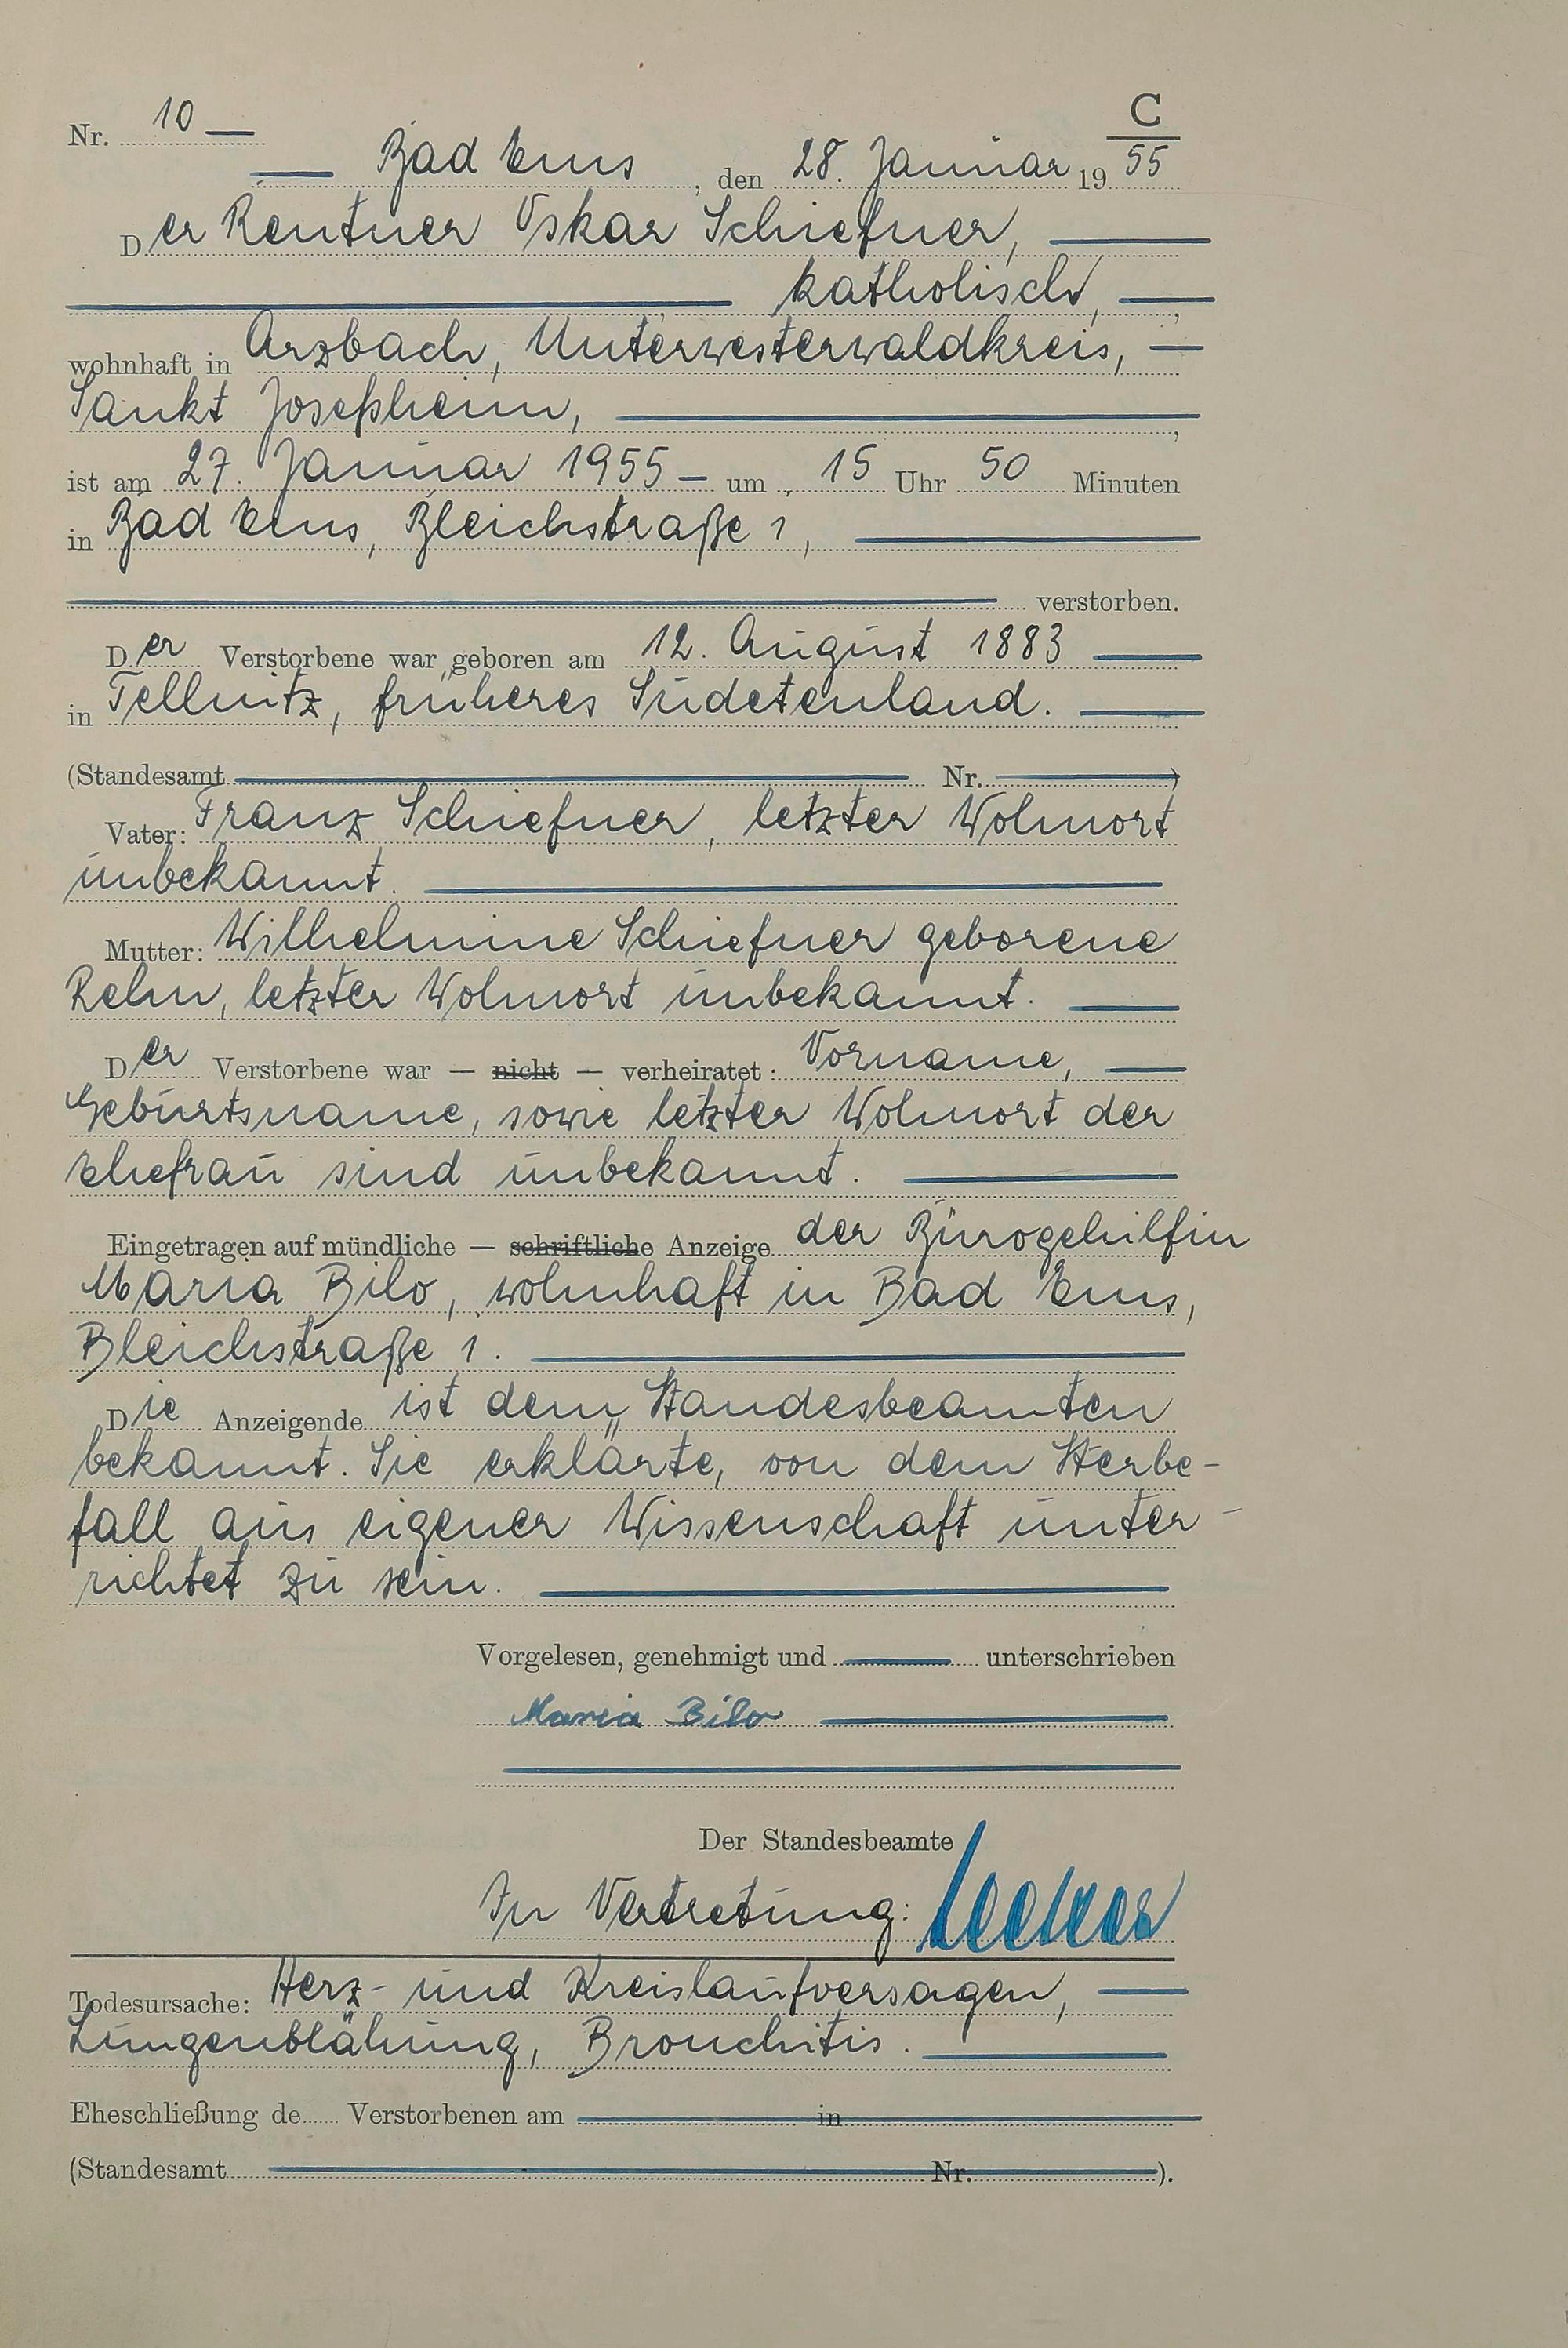 C
Nr. 10 —
— Bad Ems, den 28. Januar 1955
Der Rentner Oskar Schiefner, —
— katholisch, —,
wohnhaft in Arzbach, Unterwesterwaldkreis, —
Sankt Josefsheim, —,
ist am 27. Januar 1955 — um 15 Uhr 50 Minuten
in Bad Ems, Bleichstraße 1, —
— verstorben.
Der Verstorbene war geboren am 12. August 1883 —
in Tellnitz, früheres Sudetenland. —
(Standesamt — Nr. —)
Vater: Franz Schiefner, letzter Wohnort
unbekannt. —
Mutter: Wilhelmine Schiefner geborene
Rehn, letzter Wohnort unbekannt. —
Der Verstorbene war — nicht — verheiratet: Vorname, —
Geburtsname, sowie letzter Wohnort der
Ehefrau sind unbekannt. —
Eingetragen auf mündliche — schriftliche Anzeige der Bürogehilfin
Maria Bilo, wohnhaft in Bad Ems,
Bleichstraße 1. —
Die Anzeigende ist dem Standesbeamten
bekannt. Sie erklärte, von dem Sterbe-
fall aus eigener Wissenschaft unter-
richtet zu sein. —
Vorgelesen, genehmigt und — unterschrieben
Maria Bilo —
Der Standesbeamte
In Vertretung:
Todesursache: Herz- und Kreislaufversagen, —
Lungenblähung, Bronchitis. —
Eheschließung de Verstorbenen am — in —
(Standesamt — Nr. —).